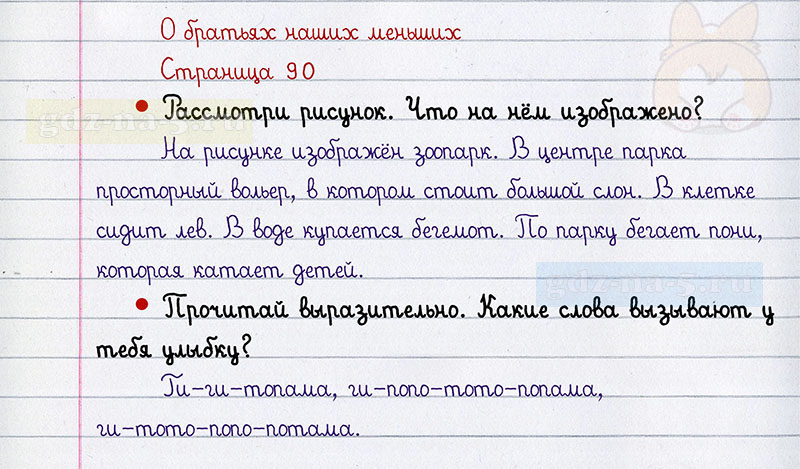 О братьях наших меньших
Страница 90
• Рассмотри рисунок. Что на нём изображено?
На рисунке изображён зоопарк. В центре парка
просторный вольер, в котором стоит большой слон. В клетке
сидит лев. В воде купается бегемот. По парку бегает пони,
которая катает детей.
• Прочитай выразительно. Какие слова вызывают у
тебя улыбку?
Ги-ги-топама, ги-попо-тото-попама,
ги-тото-попо-потама.
gdz-na-5.ru
gdz-na-5.ru